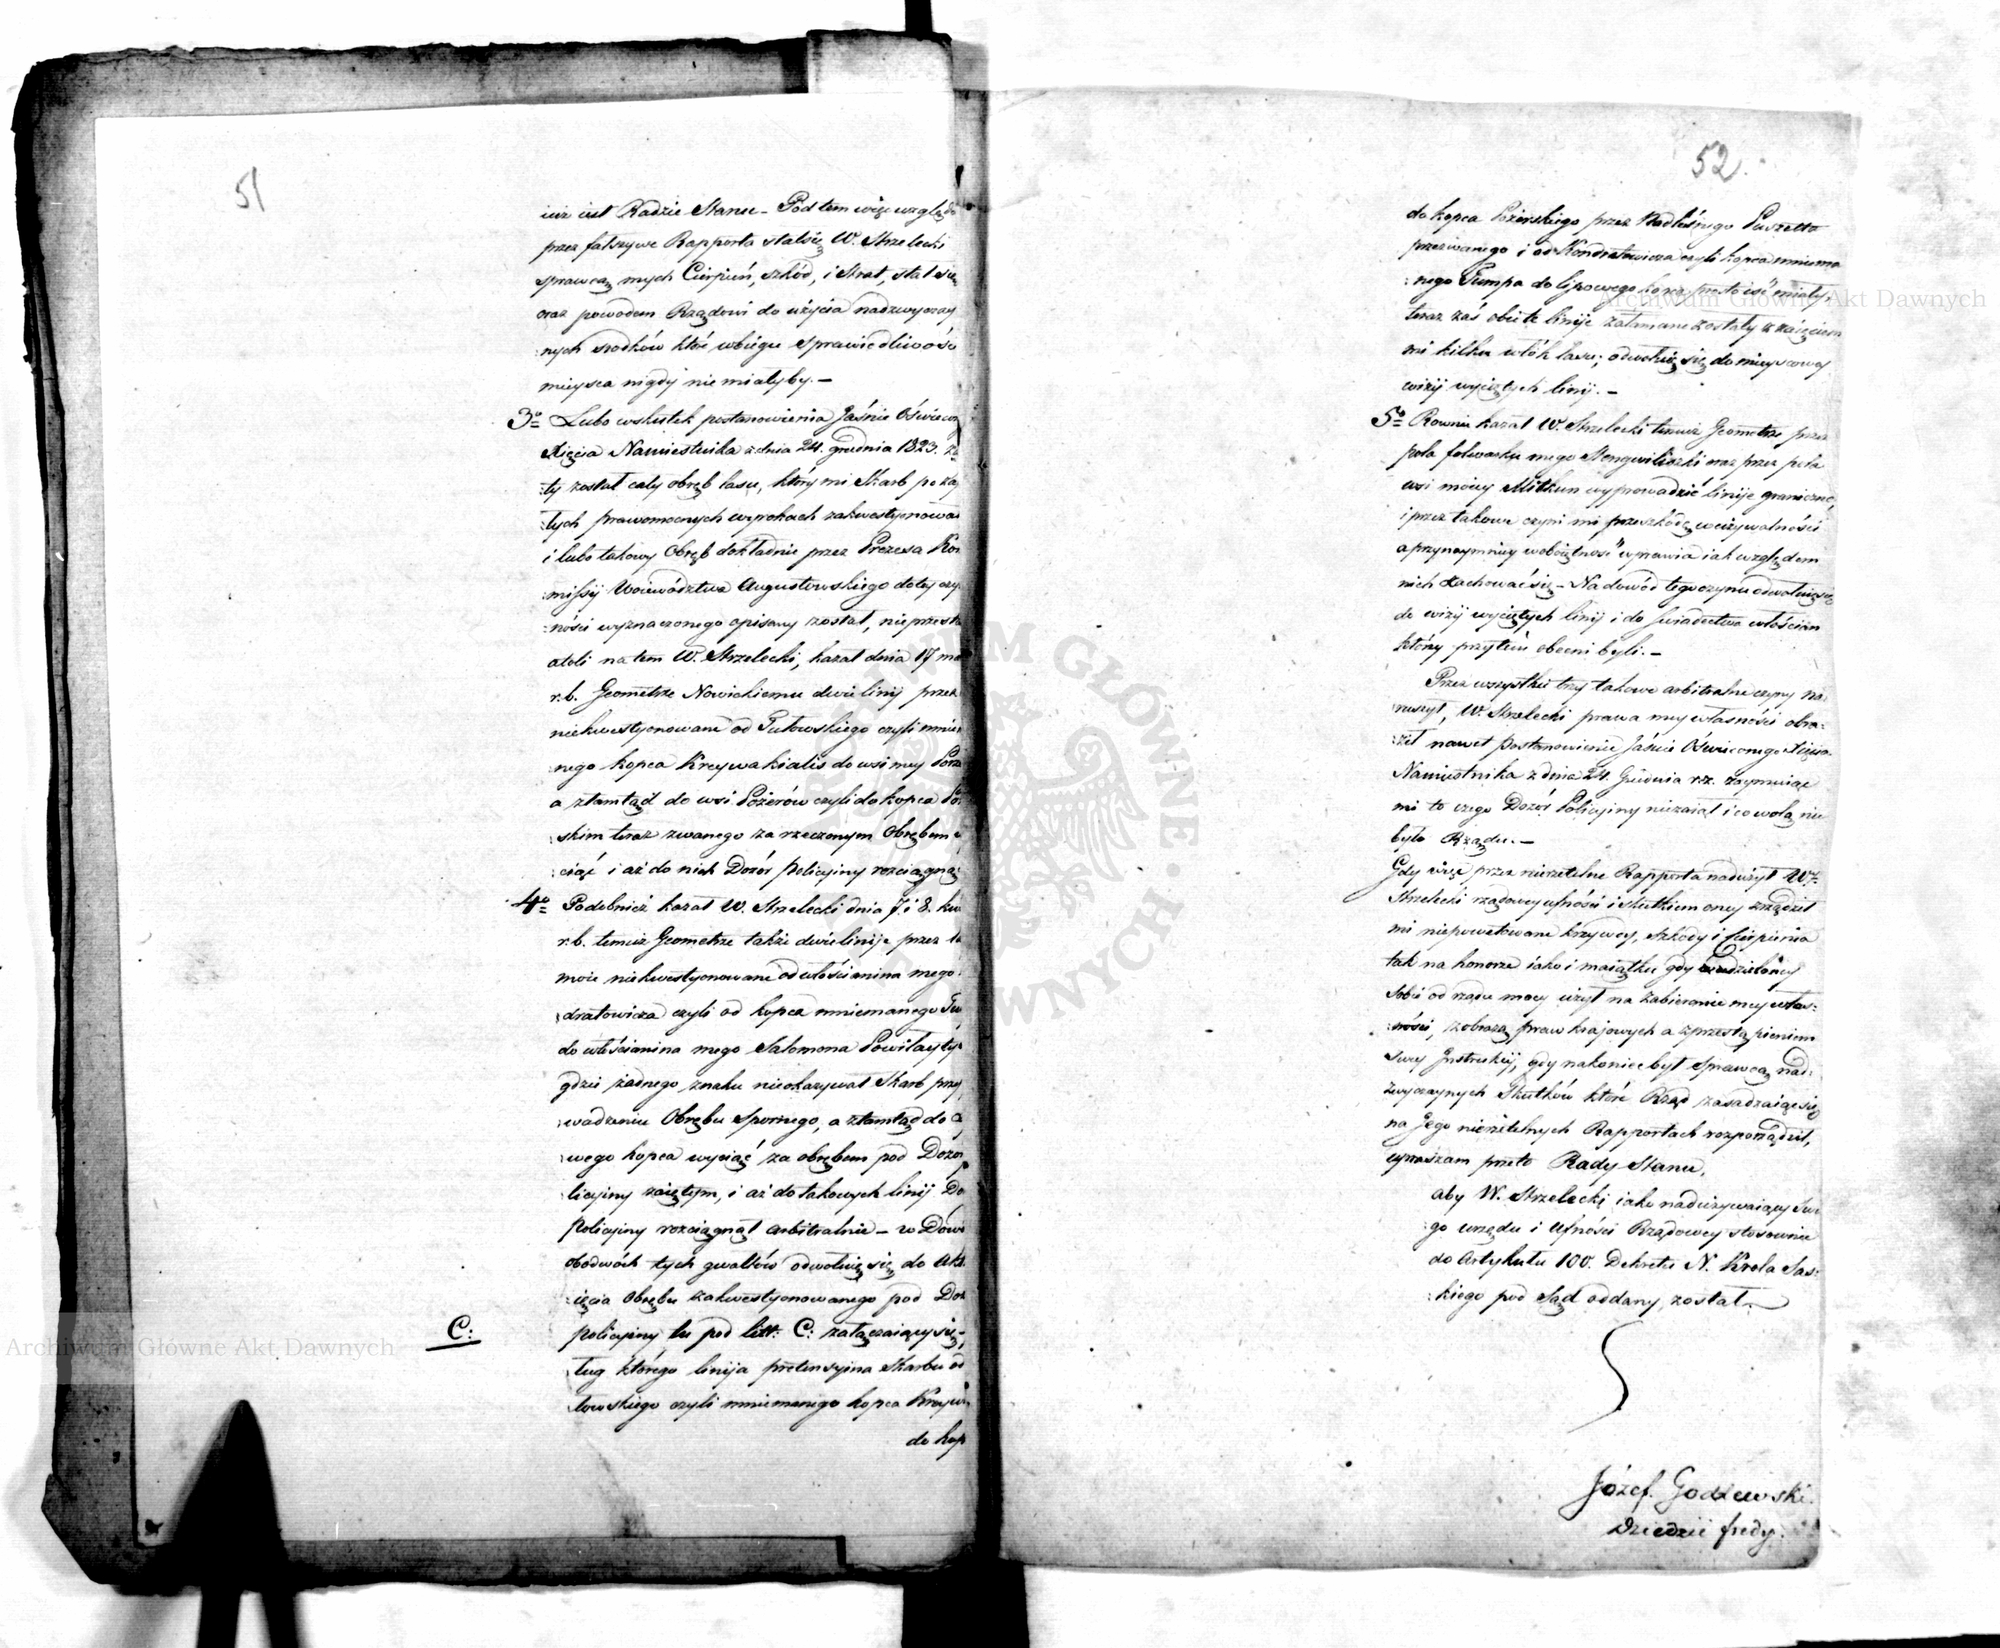 51
iuż iest Radzie Stanu – Pod tem więc względe
przez fałszywe Rapporta stałsię W. Strzelecki
sprawcą mych Cierpień, szkód, i Strat, stał się
oraz powodem Rządowi do użycia nadzwyczay
:nych szodków któr wbiegu Sprawiedliwośc
mieysca nigdy nie miałyby. –
3o Lubo wskutek postanowienia Jaśnie Oświeco
Xięcia Namiestnika z dnia 24. grudnia 1823. za
:ty został cały obręb lasu, który mi Skarb po za
:tych prawomocnych wyrokach zakwestyonowa
i lubo takowy Obręb dokładnie przez Prezesa Kom
missyi Woiewództwa Augustowskiego do tey czy
:ności wyznaczonego opisany został, nieprzesta
atoli na tem W. Strzelecki, kazał dnia 17 ma
r.b. Geometrze Nowickiemu dwie linij przez
niekwestyonowane od Gutowskiego czyli mniem
:nego kopca Kreywakialis do wsi mey
a ztamtąd do wsi Pożerów czyli do kopca
:skim teraz zwanego za rzeczonym Obrębem
:ciąć i aż do nich Dozór Policyiny rozciągną
4o Podobnież kazał W. Strzelecki dnia 7 i 8. kw
r.b. temuż Geometrze także dwie linije przez
moie niekwestyonowane od włościanina mego
:dratowicza czyli od kopca mniemanego
do włościanina mego Salomona Powiłayty
gdzie żadnego znaku nieokazywał Skarb przy
:wadzeniu Obrębu Spornego, a ztamtąd do
:wego kopca wyciąć za obrębem pod Dozor
:licyiny zaiętym, i aż do takowych linij Do
Policyiny rozciągnął arbitralnie – w Dowo
obodwóch tych gwałtów odwołuię się do Akt
:ięcia Obrębu zakwestyonowanego pod Doz
policyiny tu pod litt: C: załączaiący się –
C:
:ług którego linija pretensyina Skarbu od
:towskiego czyli mniemanego kopca Kreywa
do kop
52.
do kopca Pożerskiego przez Nadleśnego Puszetto
przezwanego i od Kondratowicza czyli kopca mniema
:nego Gumpa do lipowego kopca prosto iść miały,
teraz zaś obie te linije załamane zostały z zaięciem
mi kilku włók lasu; odwołuię się do mieyscowey
wizij wyciętych linij. –
5o Rownie kazał W. Strzelecki temuż Geometrze przez
pola folwarku mego Stengwiliszki oraz przez pola
wsi moiey Mitkun wyprowadzić linije graniczne,
i przez takowe czyni mi przeszkodę w używalności
a przynaymniey w obiętność wprawia iak względem
nich zachować się – Na dowód tego czynu odwołuię się
do wizij wyciętych linij i do świadectwa włościan
którzy przytém obecni byli. –
Przez wszystkie trzy takowe arbitralne czyny na
:ruszył, W. Strzelecki prawa mey własności obra:
:ził nawet Postanowienie Jaśnie Oświeconego Xięcia
Namiestnika z dnia 24. Grudnia r.z. zaymuiąc
mi to czego Dozór Policyiny niezaiął i co wolą nie
było Rządu. –
Gdy więc przez nierzetelne Rapporta nadużył W.
Strzelecki rządowey ufności i skutkiem oney zrządził
mi niepowetowane krzywdy, szkody i Cierpienia
tak na honorze iako i maiątku, gdy udzieloney
sobie od rządu mocy użył na zabieranie mey włas:
:ności, z obrazą praw krajowych a z przestąpieniem
swey Instrukcij, gdy nakoniec był sprawcą nad:
zwyczaynych Skutków które Rząd zasadzaiąc się
na Jego nierzetelnych Rapportach rozporządził,
upraszam przeto Rady Stanu,
aby W. Strzelecki iako nadużywaiący swe
:go urzędu i Ufności Rządowey stosownie
do Artykułu 100. Dekretu N. Króla Sas:
:kiego pod Sąd oddany został.
Józef Godlewski
Dziedzic fredy.
Archiwum Główne Akt Dawnych
Archiwum Główne Akt Dawnych